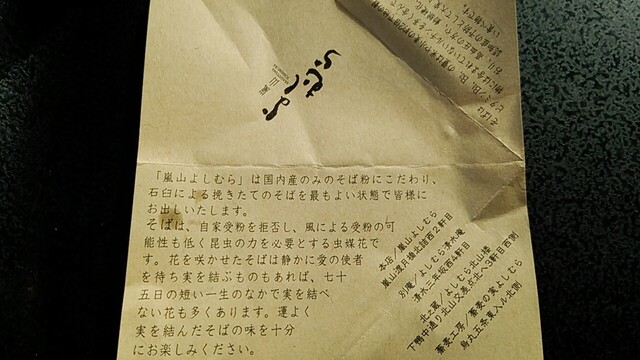 よしむら
嵐山
「嵐山よしむら」は国内産のみのそば粉にこだわり、
石臼による挽きたてのそばを最もよい状態で皆様に
お出しいたします。
そばは、自家受粉を拒否し、風による受粉の可
能性も低く昆虫の力を必要とする虫媒花で
す。花を咲かせたそばは静かに愛の使者
を待ち実を結ぶものもあれば、七十
五日の短い一生のなかで実を結べ
ない花も多くあります。運よく
実を結んだそばの味を十分
にお楽しみください。
本店/嵐山よしむら
嵐山渡月橋北詰西2軒目
別庵/よしむら清水庵
清水三年坂西4軒目
北之蔵/よしむら北山楼
下鴨中通り北山交差点北へ3軒目西側
蕎麦工房/蕎麦の実よしむら
烏丸五条東入ル北側